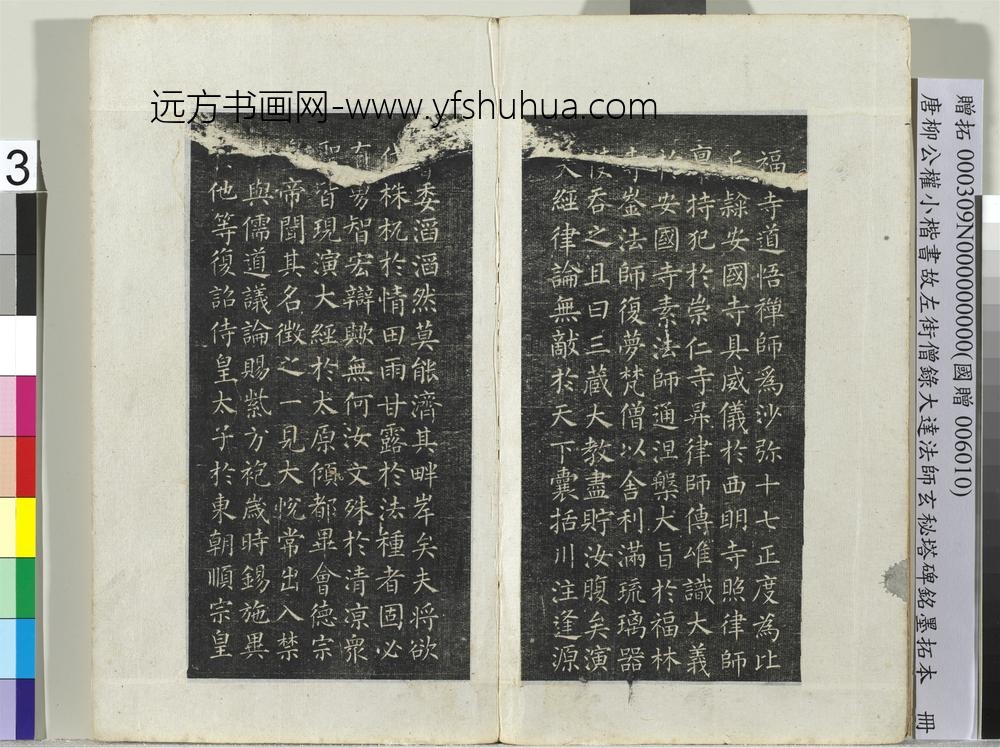 远方书画网-www.yfshuhua.com
福寺道悟禪師為沙弥十七正度為比
丘隸安國寺具威儀於西明寺照律師
稟持犯於崇仁寺昇律師傳唯識大義
於安國寺素法師通涅槃大旨於福林
寺崟法師復夢梵僧以舍利滿琉璃器
使吞之且曰三藏大教盡貯汝腹矣演
經律論無敵於天下囊括川注逢源
委滔滔然莫能濟其畔岸矣夫將欲
伐株杌於情田雨甘露於法種者固必
有勇智宏辯歟無何汝文殊於清凉眾
聖皆現演大經於太原傾都畢會德宗
帝聞其名徵之一見大悅常出入禁
與儒道議論賜紫方袍歲時錫施異
他等復詔侍皇太子於東朝順宗皇
贈拓 000309N000000000(國贈 006010)
唐柳公權小楷書故左街僧錄大達法師玄秘塔碑銘墨拓本 冊
3